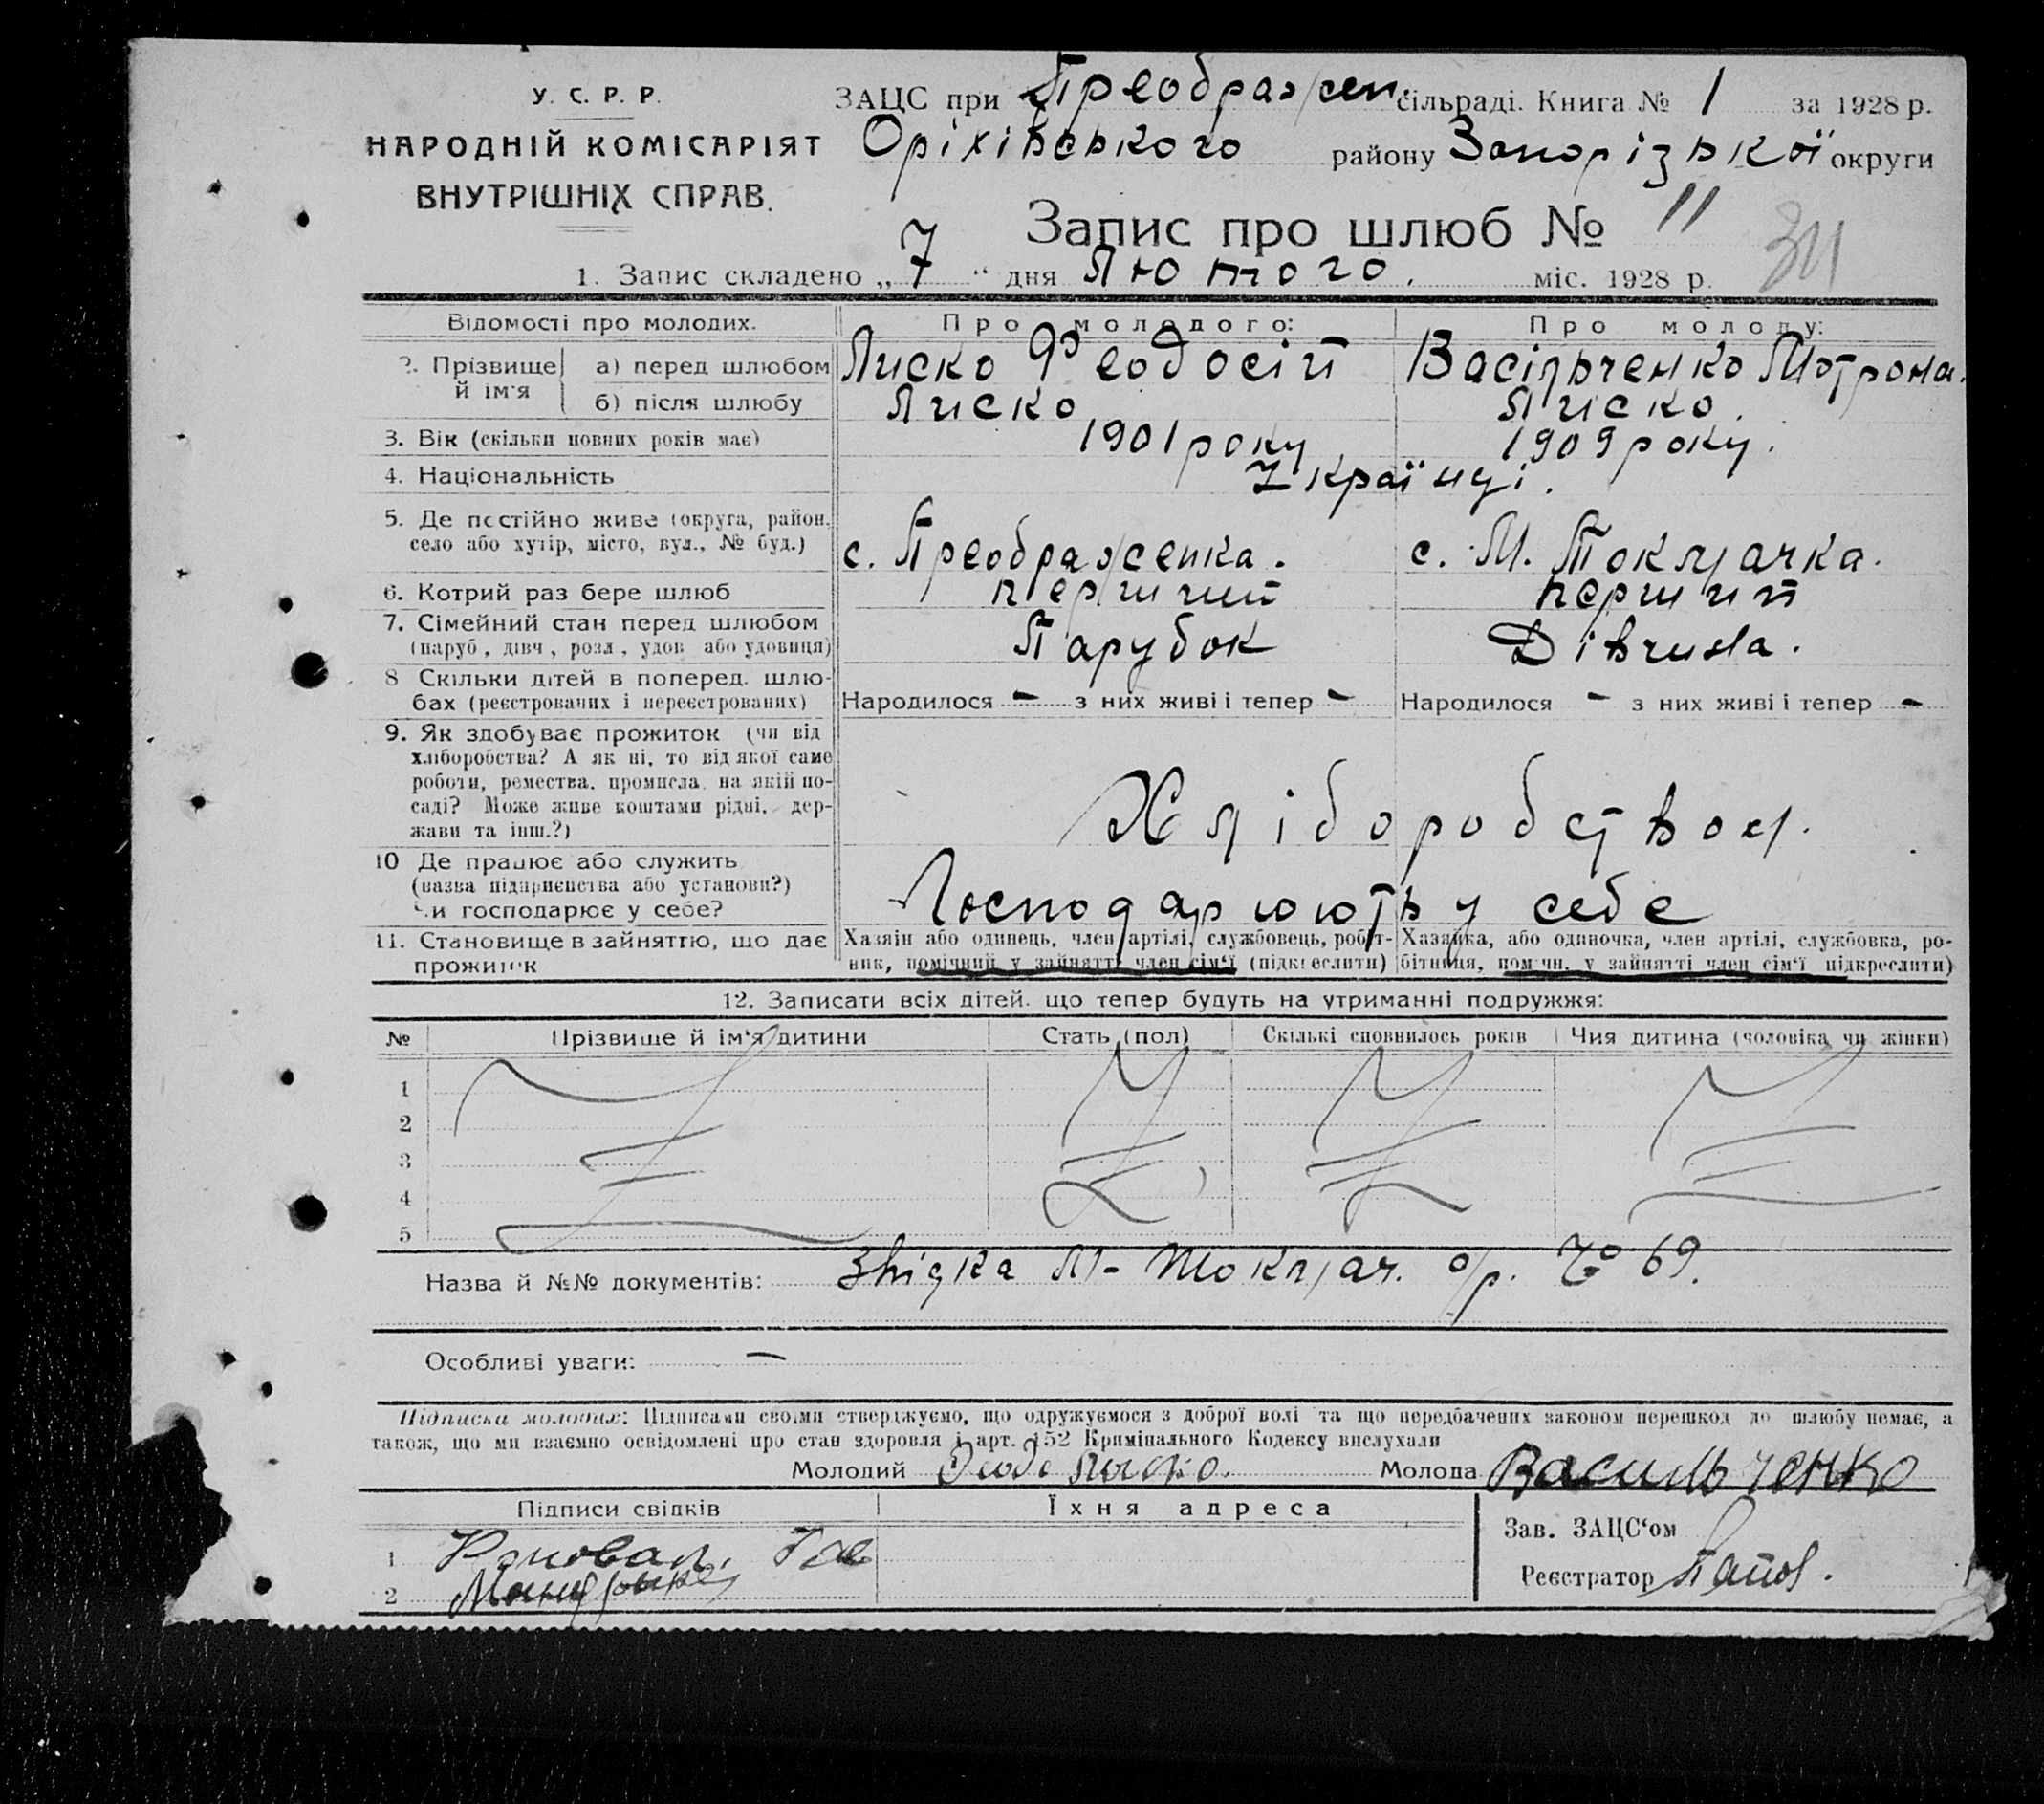 У. С. Р. Р.
НАРОДНІЙ КОМІСАРІЯТ
ВНУТРІШНІХ СПРАВ.
ЗАЦС при Преображен. сільраді. Книга № 1 за 1928 р.
Оріхівського району Запорізької округи
Запис про шлюб № 11
1. Запис складено „7“ дня Лютого. міс. 1928 р.
Відомості про молодих. Про молодого: Про молоду:
2. Прізвище й ім'я а) перед шлюбом Лиско Феодосій Васільченко Мотрона.
б) після шлюбу Лиско Лиско.
3. Вік (скільки повних років має) 1901 року 1909 року.
4. Національність Українці.
5. Де постійно живе (округа, район, село або хутір, місто, вул., № буд.) с. Преображенка. с. М. Токмачка.
6. Котрий раз бере шлюб перший перший
7. Сімейний стан перед шлюбом (паруб., дівч., розл., удов. або удовиця) Парубок Дівчина.
8 Скільки дітей в поперед. шлюбах (реєстрованих і нереєстрованих) Народилося - з них живі і тепер - Народилося - з них живі і тепер -
9. Як здобуває прожиток (чи від
хліборобства? А як ні, то від якої саме
роботи, ремества, промисла, на якій по-
саді? Може живе коштами рідні, дер-
жави та інш.?) Хліборобством.
10 Де працює або служить
(назва підприємства або установи?)
Чи господарює у себе? Господарюють у себе
11. Становище в зайняттю, що дає прожиток
Хазяїн або одинець, член артілі, службовець, робіт-
ник, помічний у зайнятті член сім'ї (підкреслити)
Хазяйка, або одиночка, член артілі, службовка, ро-
бітниця, помічн. у зайнятті член сім'ї підкреслити)
12. Записати всіх дітей, що тепер будуть на утриманні подружжя:
№ Прізвище й ім'я дитини Стать (пол) Скількі сповнилось років Чия дитина (чоловіка чи жінки)
1
2
3
4
5
Назва й №№ документів: Звідка М-Токмач. с/р. № 69.
Особливі уваги: —
Підписка молодих: Підписами своїми стверджуємо, що одружуємося з доброї волі та що передбачених законом перешкод до шлюбу немає, а
також, що ми взаємно освідомлені про стан здоровля і арт. 152 Кримінального Кодексу вислухали
Молодий Феодо Лиско. Молода Васильченко
Підписи свідків Їхня адреса
1 Коновал.
2
Зав. ЗАЦС'ом
Реєстратор